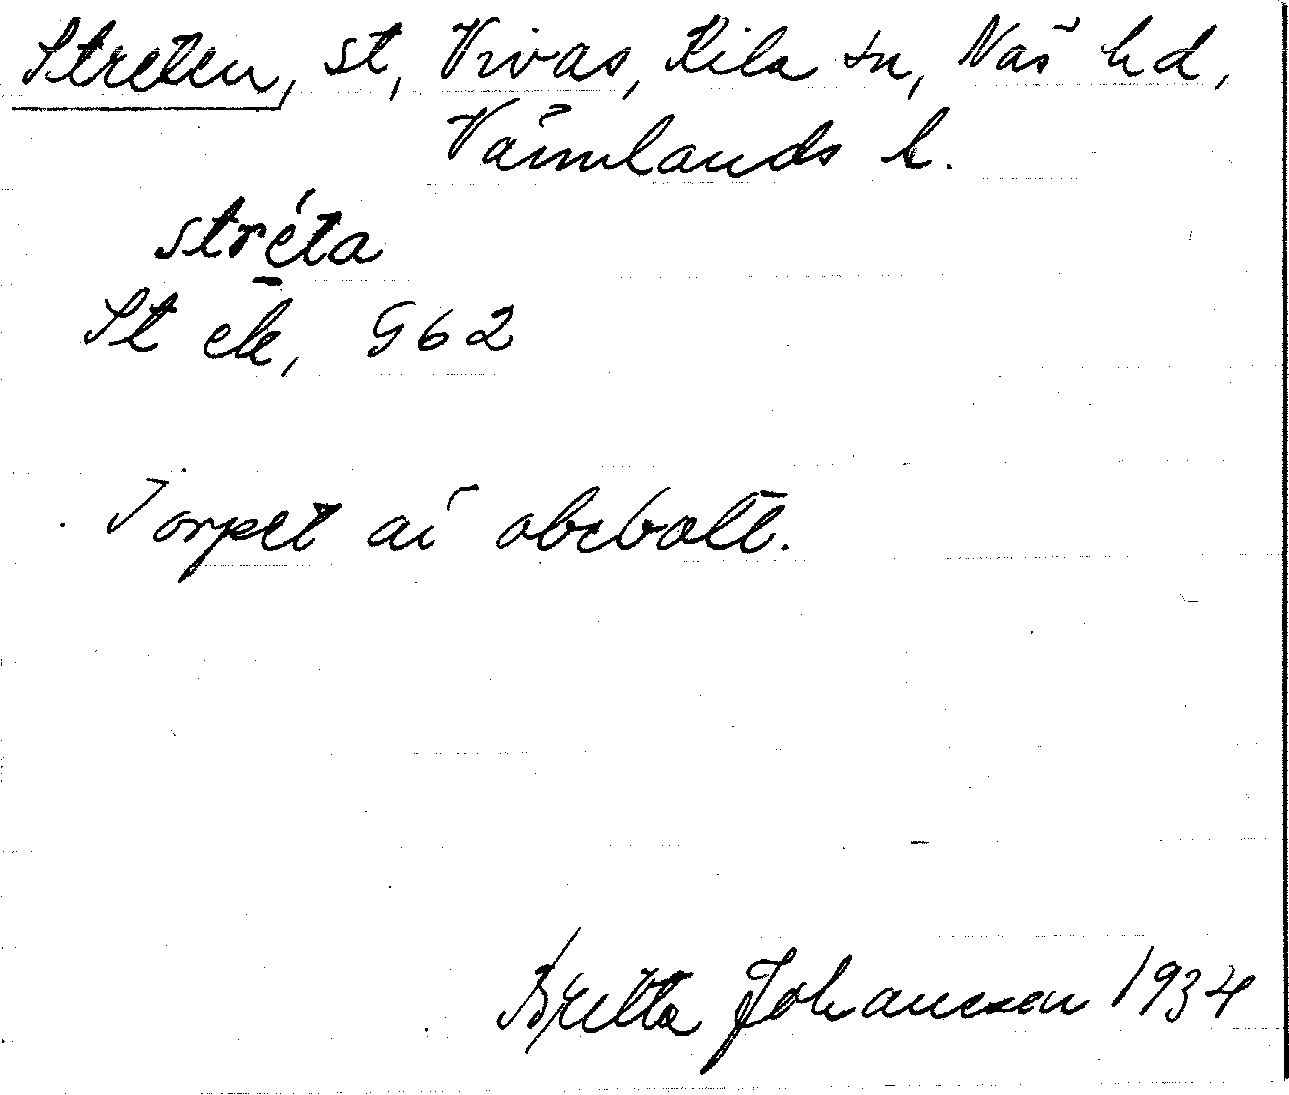 Streten, st, Vivas, Kila sn, Näs hd,
Värmlands l.
stréta
St ek, G62
Torpet är obebott.
Britta Johansson 1934